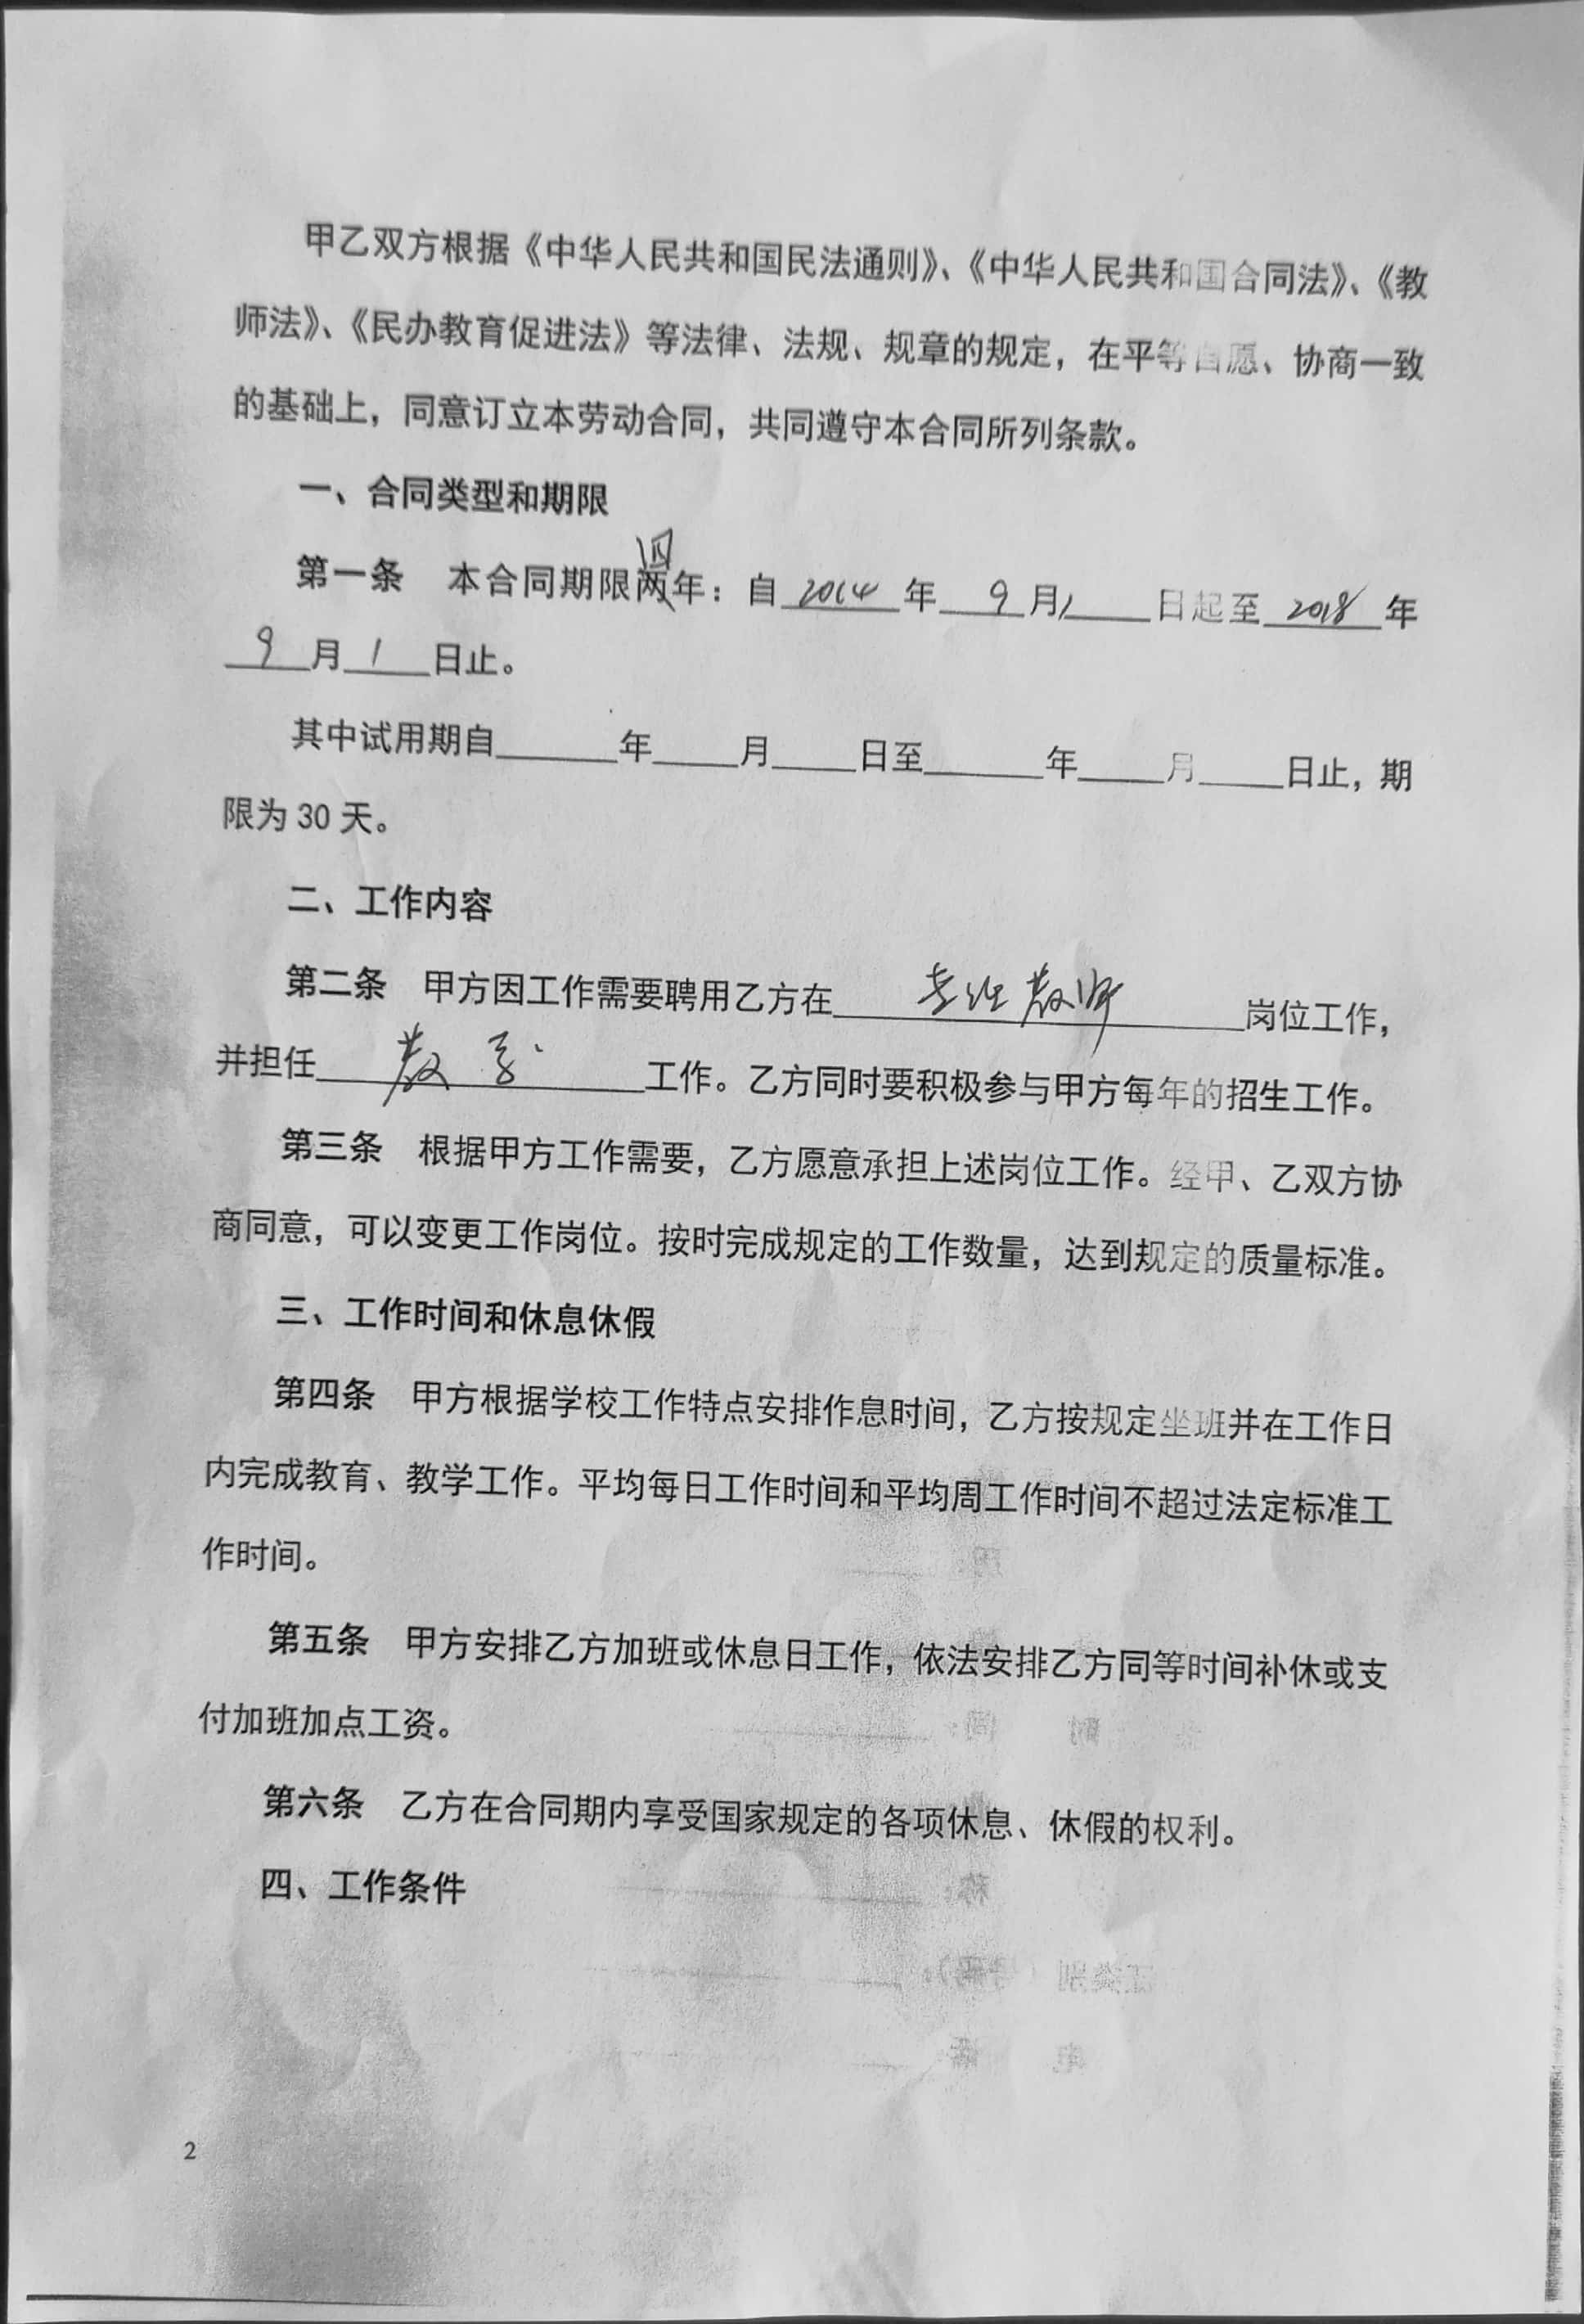 甲乙双方根据《中华人民共和国民法通则》、《中华人民共和国合同法》、《教
师法》、《民办教育促进法》等法律、法规、规章的规定，在平等自愿、协商一致
的基础上，同意订立本劳动合同，共同遵守本合同所列条款。
一、合同类型和期限
四
第一条 本合同期限两年：自 2014 年 9 月1 日起至 2018 年
9 月 1 日止。
其中试用期自______年____月____日至______年____月____日止，期
限为 30 天。
二、工作内容
第二条 甲方因工作需要聘用乙方在 专任教师 岗位工作，
并担任 教学 工作。乙方同时要积极参与甲方每年的招生工作。
第三条 根据甲方工作需要，乙方愿意承担上述岗位工作。经甲、乙双方协
商同意，可以变更工作岗位。按时完成规定的工作数量，达到规定的质量标准。
三、工作时间和休息休假
第四条 甲方根据学校工作特点安排作息时间，乙方按规定坐班并在工作日
内完成教育、教学工作。平均每日工作时间和平均周工作时间不超过法定标准工
作时间。
第五条 甲方安排乙方加班或休息日工作，依法安排乙方同等时间补休或支
付加班加点工资。
第六条 乙方在合同期内享受国家规定的各项休息、休假的权利。
四、工作条件
2